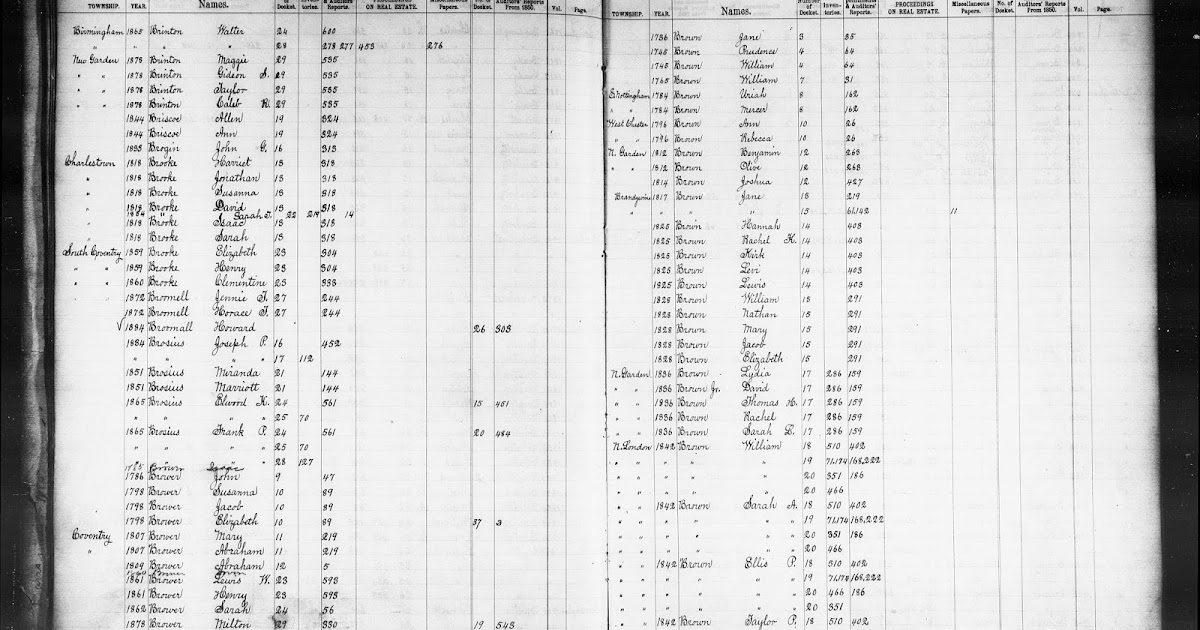 TOWNSHIP. YEAR. Names. of Docket. Inventories. & Auditors' Reports. ON REAL ESTATE. Miscellaneous Papers. No. of Docket. Auditors' Reports From 1850. Vol. Page.
Birmingham 1865 Brinton Walter 24 600
" " " " 28 278 277 453 276
New Garden 1878 Brinton Maggie 29 535
" " 1878 Brinton Gideon S. 29 535
" " 1878 Brinton Taylor 29 535
" " 1878 Brinton Caleb R. 29 535
1844 Briscoe Allen 19 324
1844 Briscoe Ann 19 324
1833 Brogin John G. 16 313
Charlestown 1818 Brooke Harriet 13 318
" 1818 Brooke Jonathan 13 318
" 1818 Brooke Susanna 13 318
" 1818 Brooke David 13 318
1854 " Sarah T. 22 219 14
" 1818 Brooke Isaac 13 318
" 1818 Brooke Sarah 13 318
South Coventry 1859 Brooke Elizabeth 23 304
" " 1859 Brooke Henry 23 304
" " 1860 Brooke Clementine 23 338
1872 Broomell Jennie T. 27 244
1872 Broomell Horace T. 27 244
√ 1884 Broomall Howard 26 303
1884 Brosius Joseph P. 16 452
" " " " 17 112
1851 Brosius Miranda 21 144
1851 Brosius Marriott 21 144
1865 Brosius Elwood K. 24 561 15 451
" " " " 25 70
1865 Brosius Frank P. 24 561 20 484
" " " " 25 70
" " " " 28 127
1785 Brown Isaac
1786 Brower John 9 47
1798 Brower Susanna 10 89
1798 Brower Jacob 10 89
1798 Brower Elizabeth 10 89 37 3
Coventry 1807 Brower Mary 11 219
" 1807 Brower Abraham 11 219
1809 Brower Abraham 12 5
1861 Brower Lewis W. 23 593
1861 Brower Henry 23 593
1862 Brower Sarah 24 56
1878 Brower Milton 29 330 19 543
TOWNSHIP. YEAR. Names. Number of Docket. Inventories. & Auditors' Reports. PROCEEDINGS ON REAL ESTATE. Miscellaneous Papers. No. of Docket. Auditors' Reports From 1850. Vol. Page.
1736 Brown Jane 3 35
1745 Brown Prudence 4 64
1745 Brown William 4 64
1765 Brown William 7 31
E. Nottingham 1784 Brown Uriah 8 162
" " 1784 Brown Mercer 8 162
West Chester 1796 Brown Ann 10 26
" " 1796 Brown Rebecca 10 26
N. Garden 1812 Brown Benjamin 12 263
" " 1812 Brown Olive 12 263
1814 Brown Joshua 12 427
Brandywine 1817 Brown Jane 13 219
" " " " 15 61,142 11
1825 Brown Hannah 14 403
1825 Brown Rachel K. 14 403
1825 Brown Kirk 14 403
1825 Brown Levi 14 403
1825 Brown Lewis 14 403
1828 Brown William 15 291
1828 Brown Nathan 15 291
1828 Brown Mary 15 291
1828 Brown Jacob 15 291
1828 Brown Elizabeth 15 291
N. Garden 1836 Brown Lydia 17 286 159
" " 1836 Brown Jr. David 17 286 159
" " 1836 Brown Thomas H. 17 286 159
" " 1836 Brown Rachel 17 286 159
" " 1836 Brown Sarah L. 17 286 159
N. London 1842 Brown William 18 510 402
" " " " " 19 71,174 168,222
" " " " " 20 351 186
" " " " " 20 466
" " 1842 Brown Sarah A. 18 510 402
" " " " " " 19 71,174 168,222
" " " " " " 20 351 186
" " " " " " 20 466
" " 1842 Brown Ellis P. 18 510 402
" " " " " " 19 71,174 168,222
" " " " " " 20 466 186
" " " " " " 20 351
" " 1842 Brown Taylor P. 18 510 402